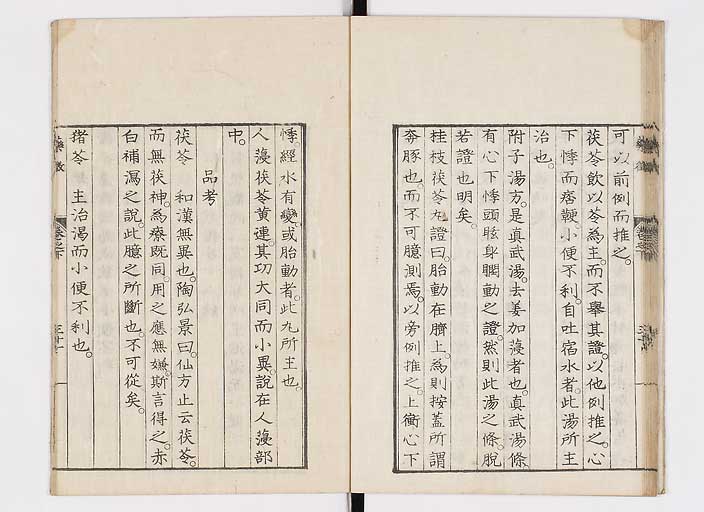 可以前例而推之。
茯苓飲以苓為主。而不舉其證。以他例推之。心
下悸而痞鞕。小便不利。自吐宿水者。此湯所主
治也。
附子湯方。是真武湯。去姜加薓者也。真武湯條
有心下悸頭眩身瞤動之證。然則此湯之條。脫
若證也明矣。
桂枝茯苓丸證曰。胎動在臍上。為則按蓋所謂
奔豚也。而不可臆測焉。以旁例推之。上衝心下
悸。經水有變。或胎動者。此丸所主也。
人薓茯苓黃連。其功大同而小異。說在人薓部
中。
品考
茯苓 和漢無異也。陶弘景曰。仙方止云茯苓。
而無茯神。為療既同。用之應無嫌。斯言得之。赤
白補瀉之說。此臆之所斷也。不可從矣。
猪苓 主治渴而小便不利也。
藥徵
卷之下